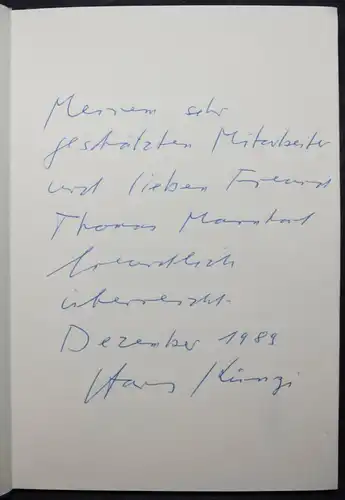 Meinem sehr
geschätzten Mitarbeiter
und lieben Freund
Thomas
freundlich
überreicht.
Dezember 1989
Hans Künzi